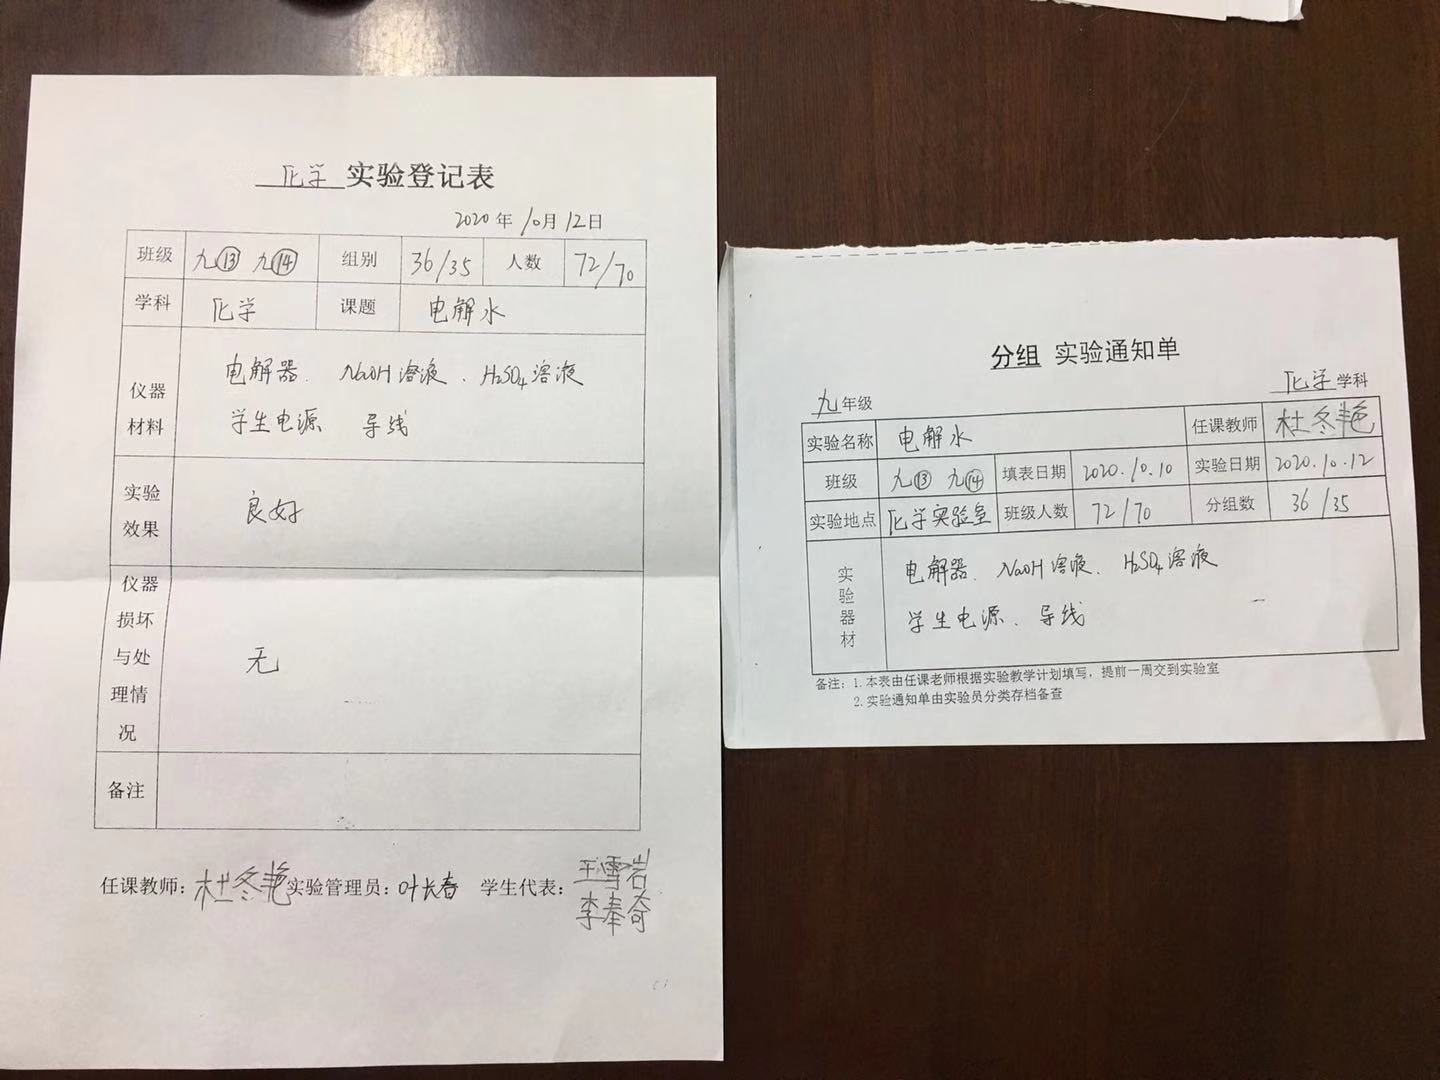 化学 实验登记表
2020年10月12日
班级 九⑬ 九⑭ 组别 36/35 人数 72/70
学科 化学 课题 电解水
仪器材料 电解器、NaOH溶液、H₂SO₄溶液
学生电源 导线
实验效果 良好
仪器损坏与处理情况 无
备注
任课教师：杜冬艳 实验管理员：叶长春 学生代表：王雪岩
李奉奇
分组 实验通知单
九年级 化学学科
实验名称 电解水 任课教师 杜冬艳
班级 九⑬ 九⑭ 填表日期 2020.10.10 实验日期 2020.10.12
实验地点 化学实验室 班级人数 72/70 分组数 36/35
实验器材 电解器、NaOH溶液、H₂SO₄溶液
学生电源、导线
备注：1.本表由任课老师根据实验教学计划填写，提前一周交到实验室
2.实验通知单由实验员分类存档备查